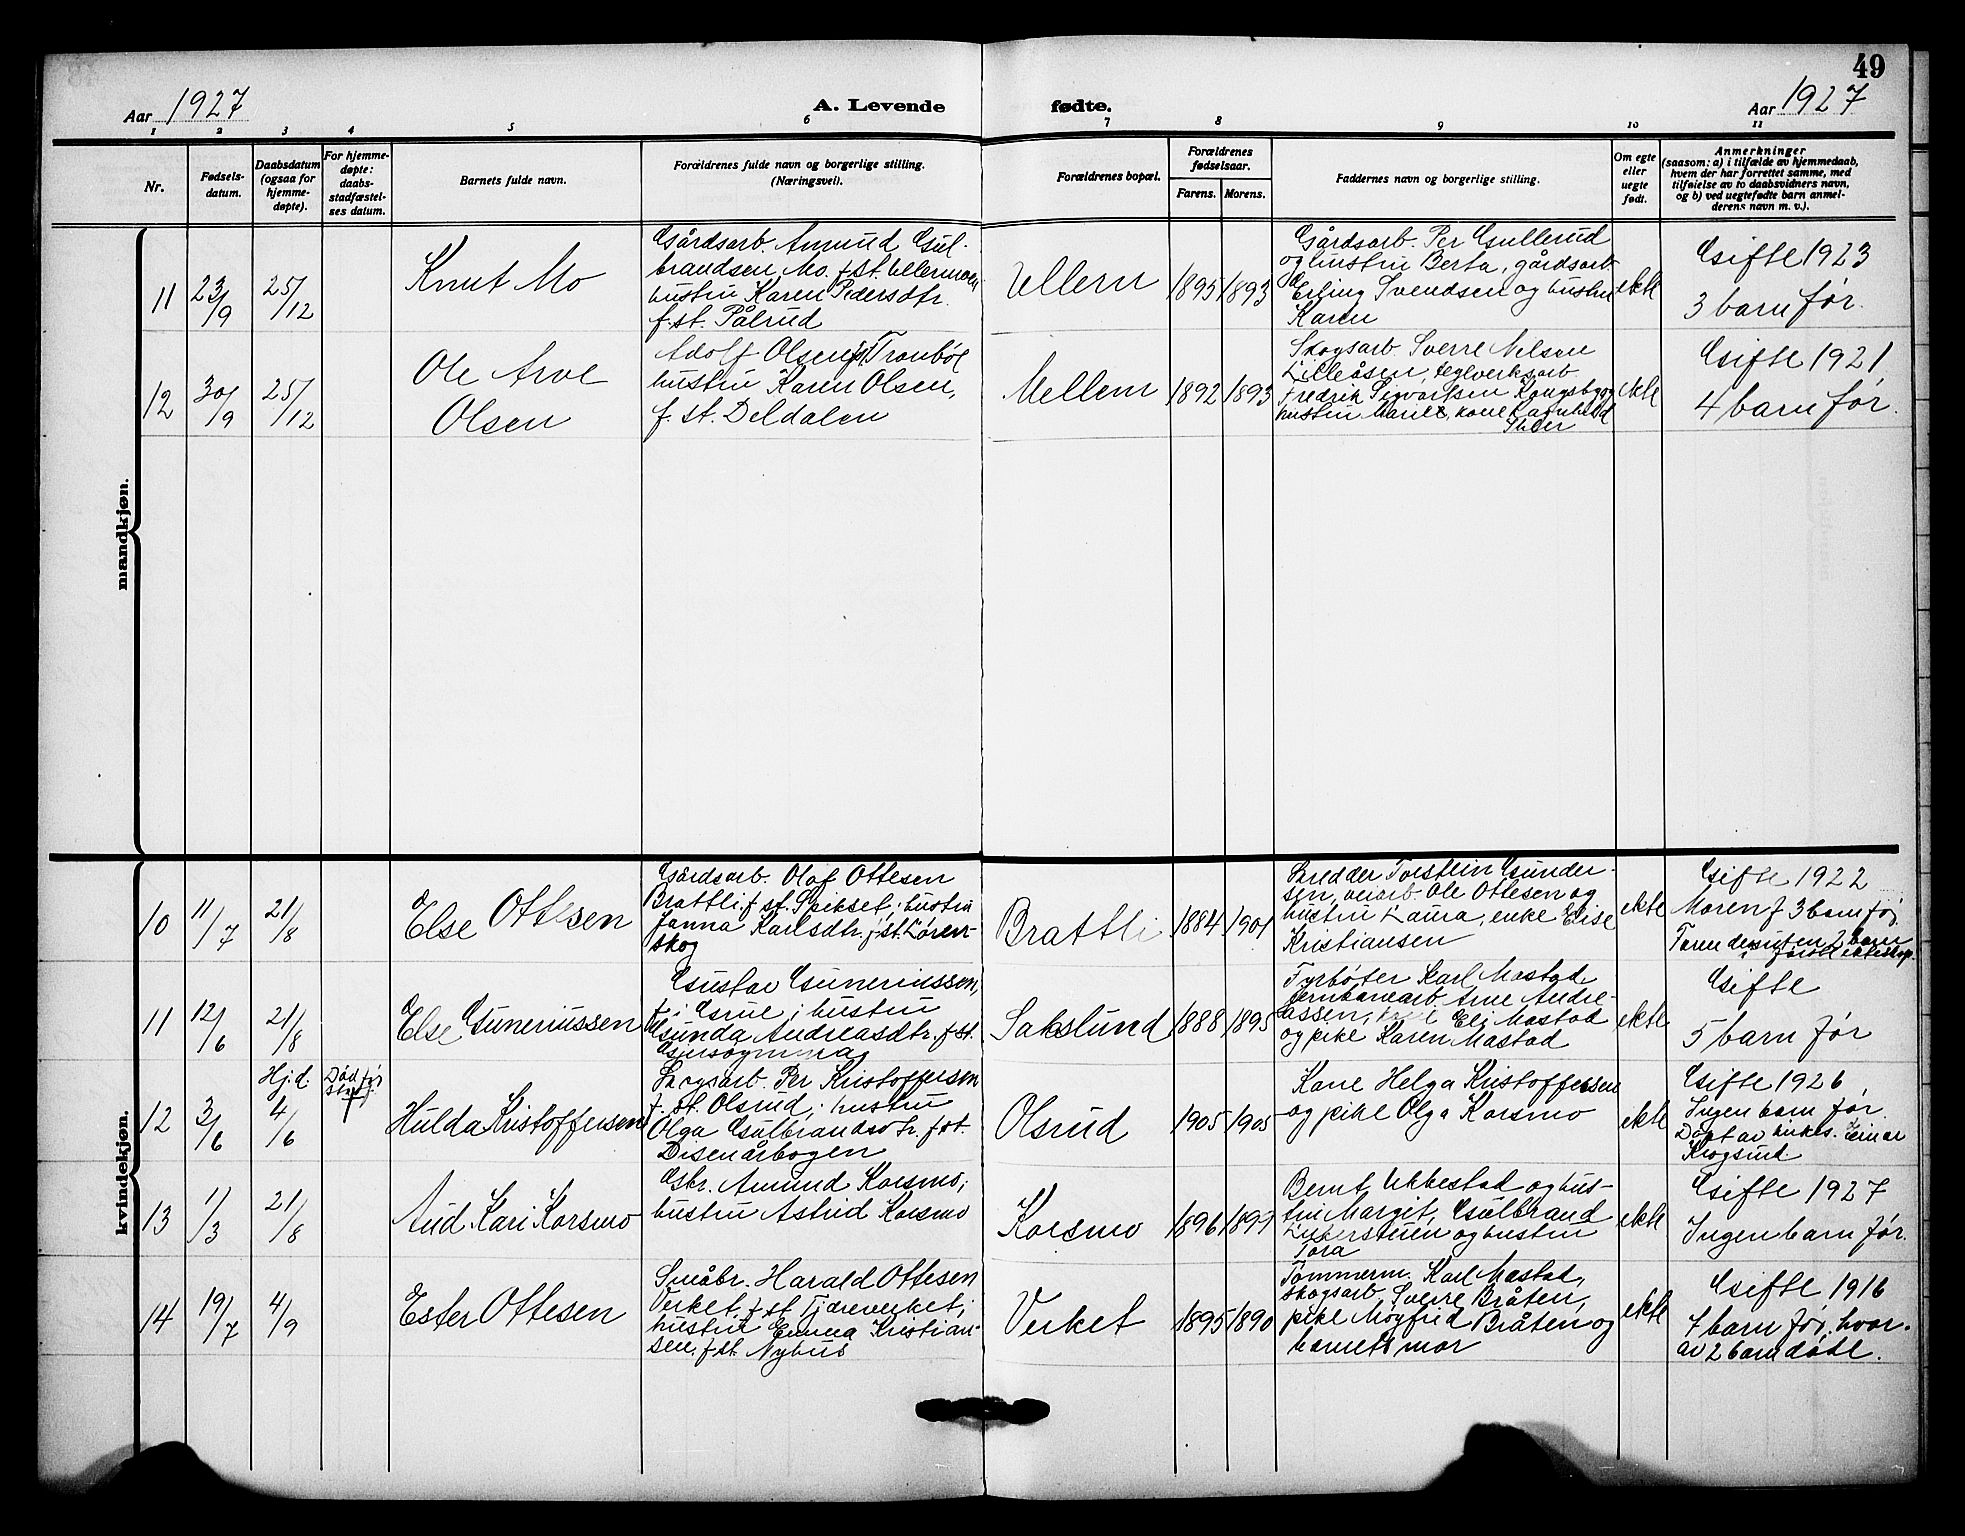 49
Aar 1927
A. Levende
fødte.
Aar 1927
1 2 3 4 5 6 7 8 9 10 11
Nr.
Fødsels-
datum.
Daabsdatum
(ogsaa for
hjemme-
døpte).
For hjemme-
døpte:
daabs-
stadfæstel-
ses datum.
Barnets fulde navn.
Forældrenes fulde navn og borgerlige stilling.
(Næringsvei).
Forældrenes bopæl.
Forældrenes
fødselsaar.
Farens. Morens.
Faddernes navn og borgerlige stilling.
Om egte
eller
uegte
født.
Anmerkninger
(saasom: a) i tilfælde av hjemmedaab,
hvem der har forrettet samme, med
tilføielse av to daabsvidners navn,
og b) ved uegtefødte barn anmel-
derens navn m. v.).
mandkjøn.
11
23/9
25/12
Knut Mo
Gårdsarb. Amund Gul-
brandsen Mo. f. st. Ullernmoen
hustru Karen Pedersdtr.
f. st. Pålrud
Ullern
1895
1893
Gårdsarb. Per Gullerud
og hustru Berta, gårdsarb.
Erling Svendsen og hustru
Karen
ekte
Gifte 1923
3 barn før.
12
30/9
25/12
Ole Arve
Olsen
Adolf Olsen f. st. Tronbøl
hustru Karen Olsen,
f. st. Deldalen
Mellem
1892
1893
Skogsarb. Sverre Nelsen
Lilleåsen, teglverksarb.
Fredrik Sigvartsen Kongsbg og
hustru Marie, kone Ragnhild
ekte
Gifte 1921
4 barn før.
kvindekjøn.
10
11/7
21/8
Else Ottesen
Gårdsarb. Olaf Ottesen
Brattli f. st. Spikset; hustru
Janna Karlsdtr. f. st. Løren-
skog
Brattli
1884
1901
Skredder Torstein Gunder-
sen, veiarb. Ole Ottesen og
hustru Laura, enke Elise
Kristiansen
ekte
Gifte 1922
Moren f 3 barn før,
Faren desuten 2 barn
i første ekteskap.
11
12/6
21/8
Else Guneriussen
Gustav Guneriussen,
f. i Grue; hustru
Gunda Andreasdtr. f. st.
Sakslund
1888
1895
Fyrbøter Karl Mastad
jernbanearb. Arne Andre-
assen, Eli Mastad
og pike Karen Mastad
ekte
Gifte
5 barn før
12
3/6
Hj.d.
4/6
Død før
stadf.
Hulda Kristoffersen
Skogsarb. Per Kristoffersen
f. st. Olsrud; hustru
Olga Gulbrandsdtr. f. st.
Disenårbogen
Olsrud
1905
1905
Kone Helga Kristoffersen
og pike Olga Korsmo
ekte
Gifte 1926,
Ingen barn før.
Døpt av kirkes. Einar
Krogsrud
13
1/3
21/8
Aud Kari Korsmo
Gbr. Amund Korsmo;
hustru Astrid Korsmo
Korsmo
1896
1897
Bernt Ubbestad og hus-
tru Margit, Gulbrand
og hustru
Tora
ekte
Gifte 1927
Ingen barn før.
14
19/7
4/9
Ester Ottesen
Småbr. Harald Ottesen
Verket, f. st. Tjæreverket;
hustru Emma Kristian-
sen, f. st. Nyhus
Verket
1895
1890
Tømmerm. Karl Mastad,
skogsarb. Sverre Bråten,
pike Møyfrid Bråten og
barnets mor
ekte
Gifte 1916
7 barn før, hvor-
av 2 barn døde.